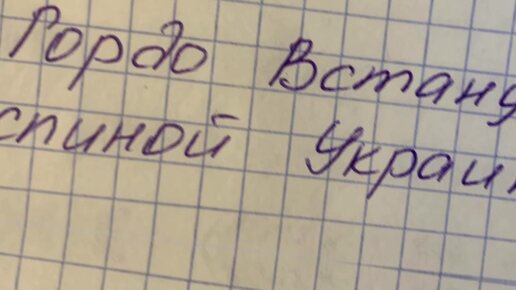 Гордо Встану
спиной Украи